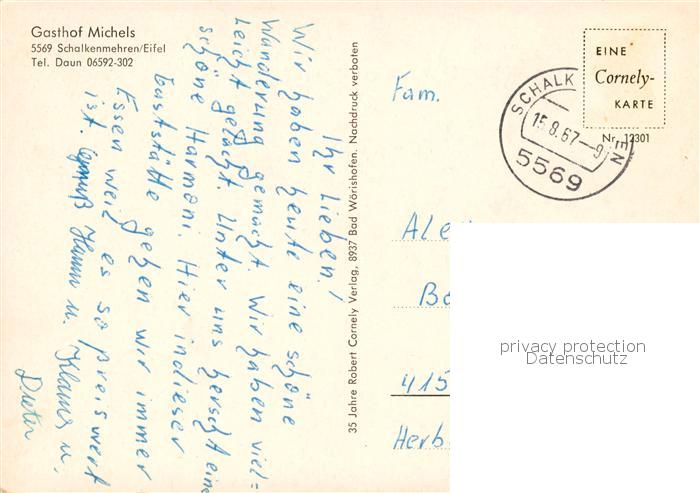 Gasthof Michels
5569 Schalkenmehren/Eifel
Tel. Daun 06592-302
Ihr Lieben!
Wir haben heute eine schöne
Wanderung gemacht. Wir haben viel=
leicht gelacht. Unter uns herscht eine
schöne Harmoni. Hier in dieser
Gaststätte gehen wir immer
Essen weil es so preiswert
ist. Gruß Hanni u. Klaus u.
Dieter
35 Jahre Robert Cornely Verlag, 8937 Bad Wörishofen. Nachdruck verboten
EINE
Cornely-
KARTE
Nr. 12301
SCHALK EN
15.8.67-9
5569
Fam.
Ale
Be
415
Herb
privacy protection
Datenschutz